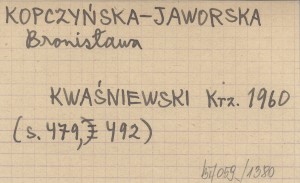 KOPCZYŃSKA-JAWORSKA
Bronisława
KWAŚNIEWSKI Krz. 1960
(s. 479, I 492)
/059/1380